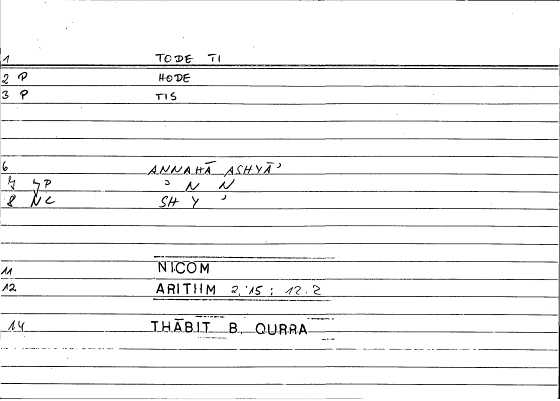 1 TODE TI
2 P HODE
3 P TIS
6 ANNAHĀ ASHYĀʾ
7 YP ʾ N N
8 NC SH Y ʾ
11 NICOM
12 ARITHM 2,15; 12.2
14 THĀBIT B. QURRA